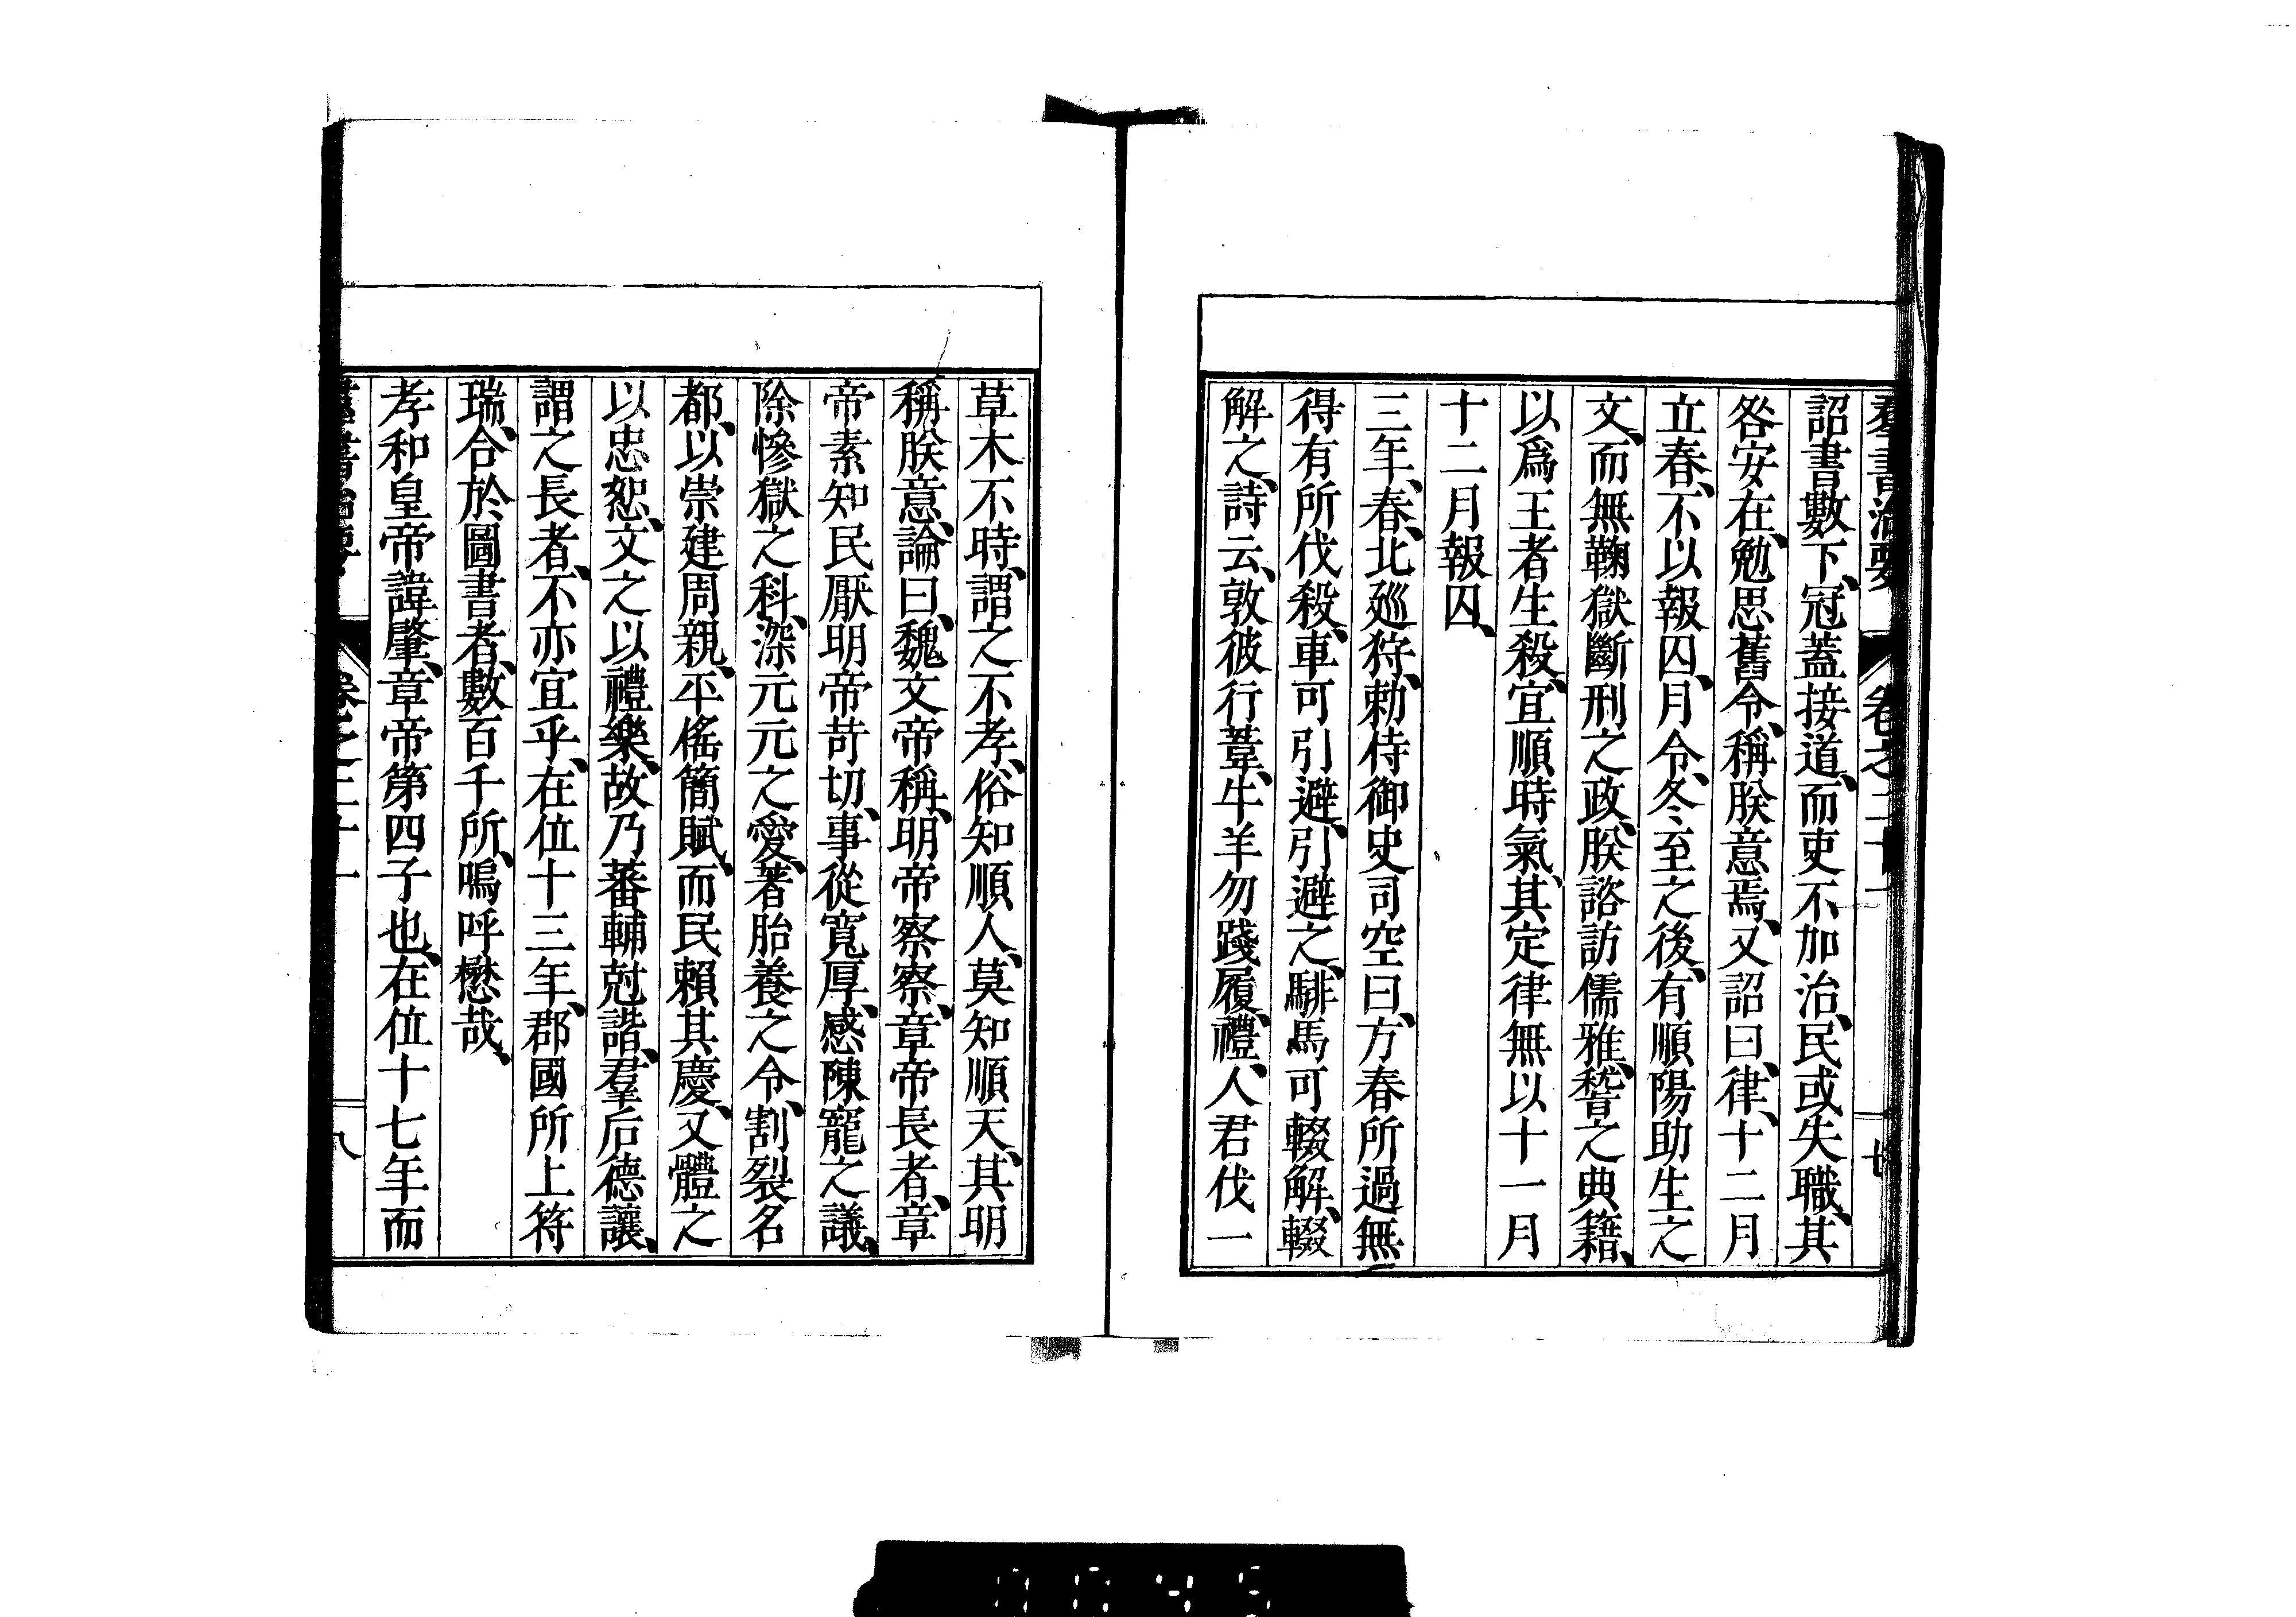 羣書治要 卷之二十一 七
詔書數下、冠蓋接道、而吏不加治、民或失職、其
咎安在、勉思舊令、稱朕意焉、又詔曰、律、十二月
立春、不以報囚、月令、冬至之後、有順陽助生之
文、而無鞠獄斷刑之政、朕諮訪儒雅、稽之典籍、
以爲王者生殺、宜順時氣、其定律無以十一月
十二月報囚、
三年、春、北巡狩、勅侍御史司空曰、方春所過無
得有所伐殺、車可引避、引避之、騑馬可輟解、輟
解之、詩云、敦彼行葦、牛羊勿踐履、禮、人君伐一
草木不時、謂之不孝、俗知順人、莫知順天、其明
稱朕意、論曰、魏文帝稱、明帝察察、章帝長者、章
帝素知民厭明帝苛切、事從寬厚、感陳寵之議、
除慘獄之科、深元元之愛、著胎養之令、割裂名
都、以崇建周親、平徭簡賦、而民賴其慶、又體之
以忠恕、文之以禮樂、故乃蕃輔尅諧、羣后德讓、
謂之長者、不亦宜乎、在位十三年、郡國所上符
瑞、合於圖書者、數百千所、嗚呼懋哉、
孝和皇帝諱肇、章帝第四子也、在位十七年而
羣書治要 卷之二十一 八